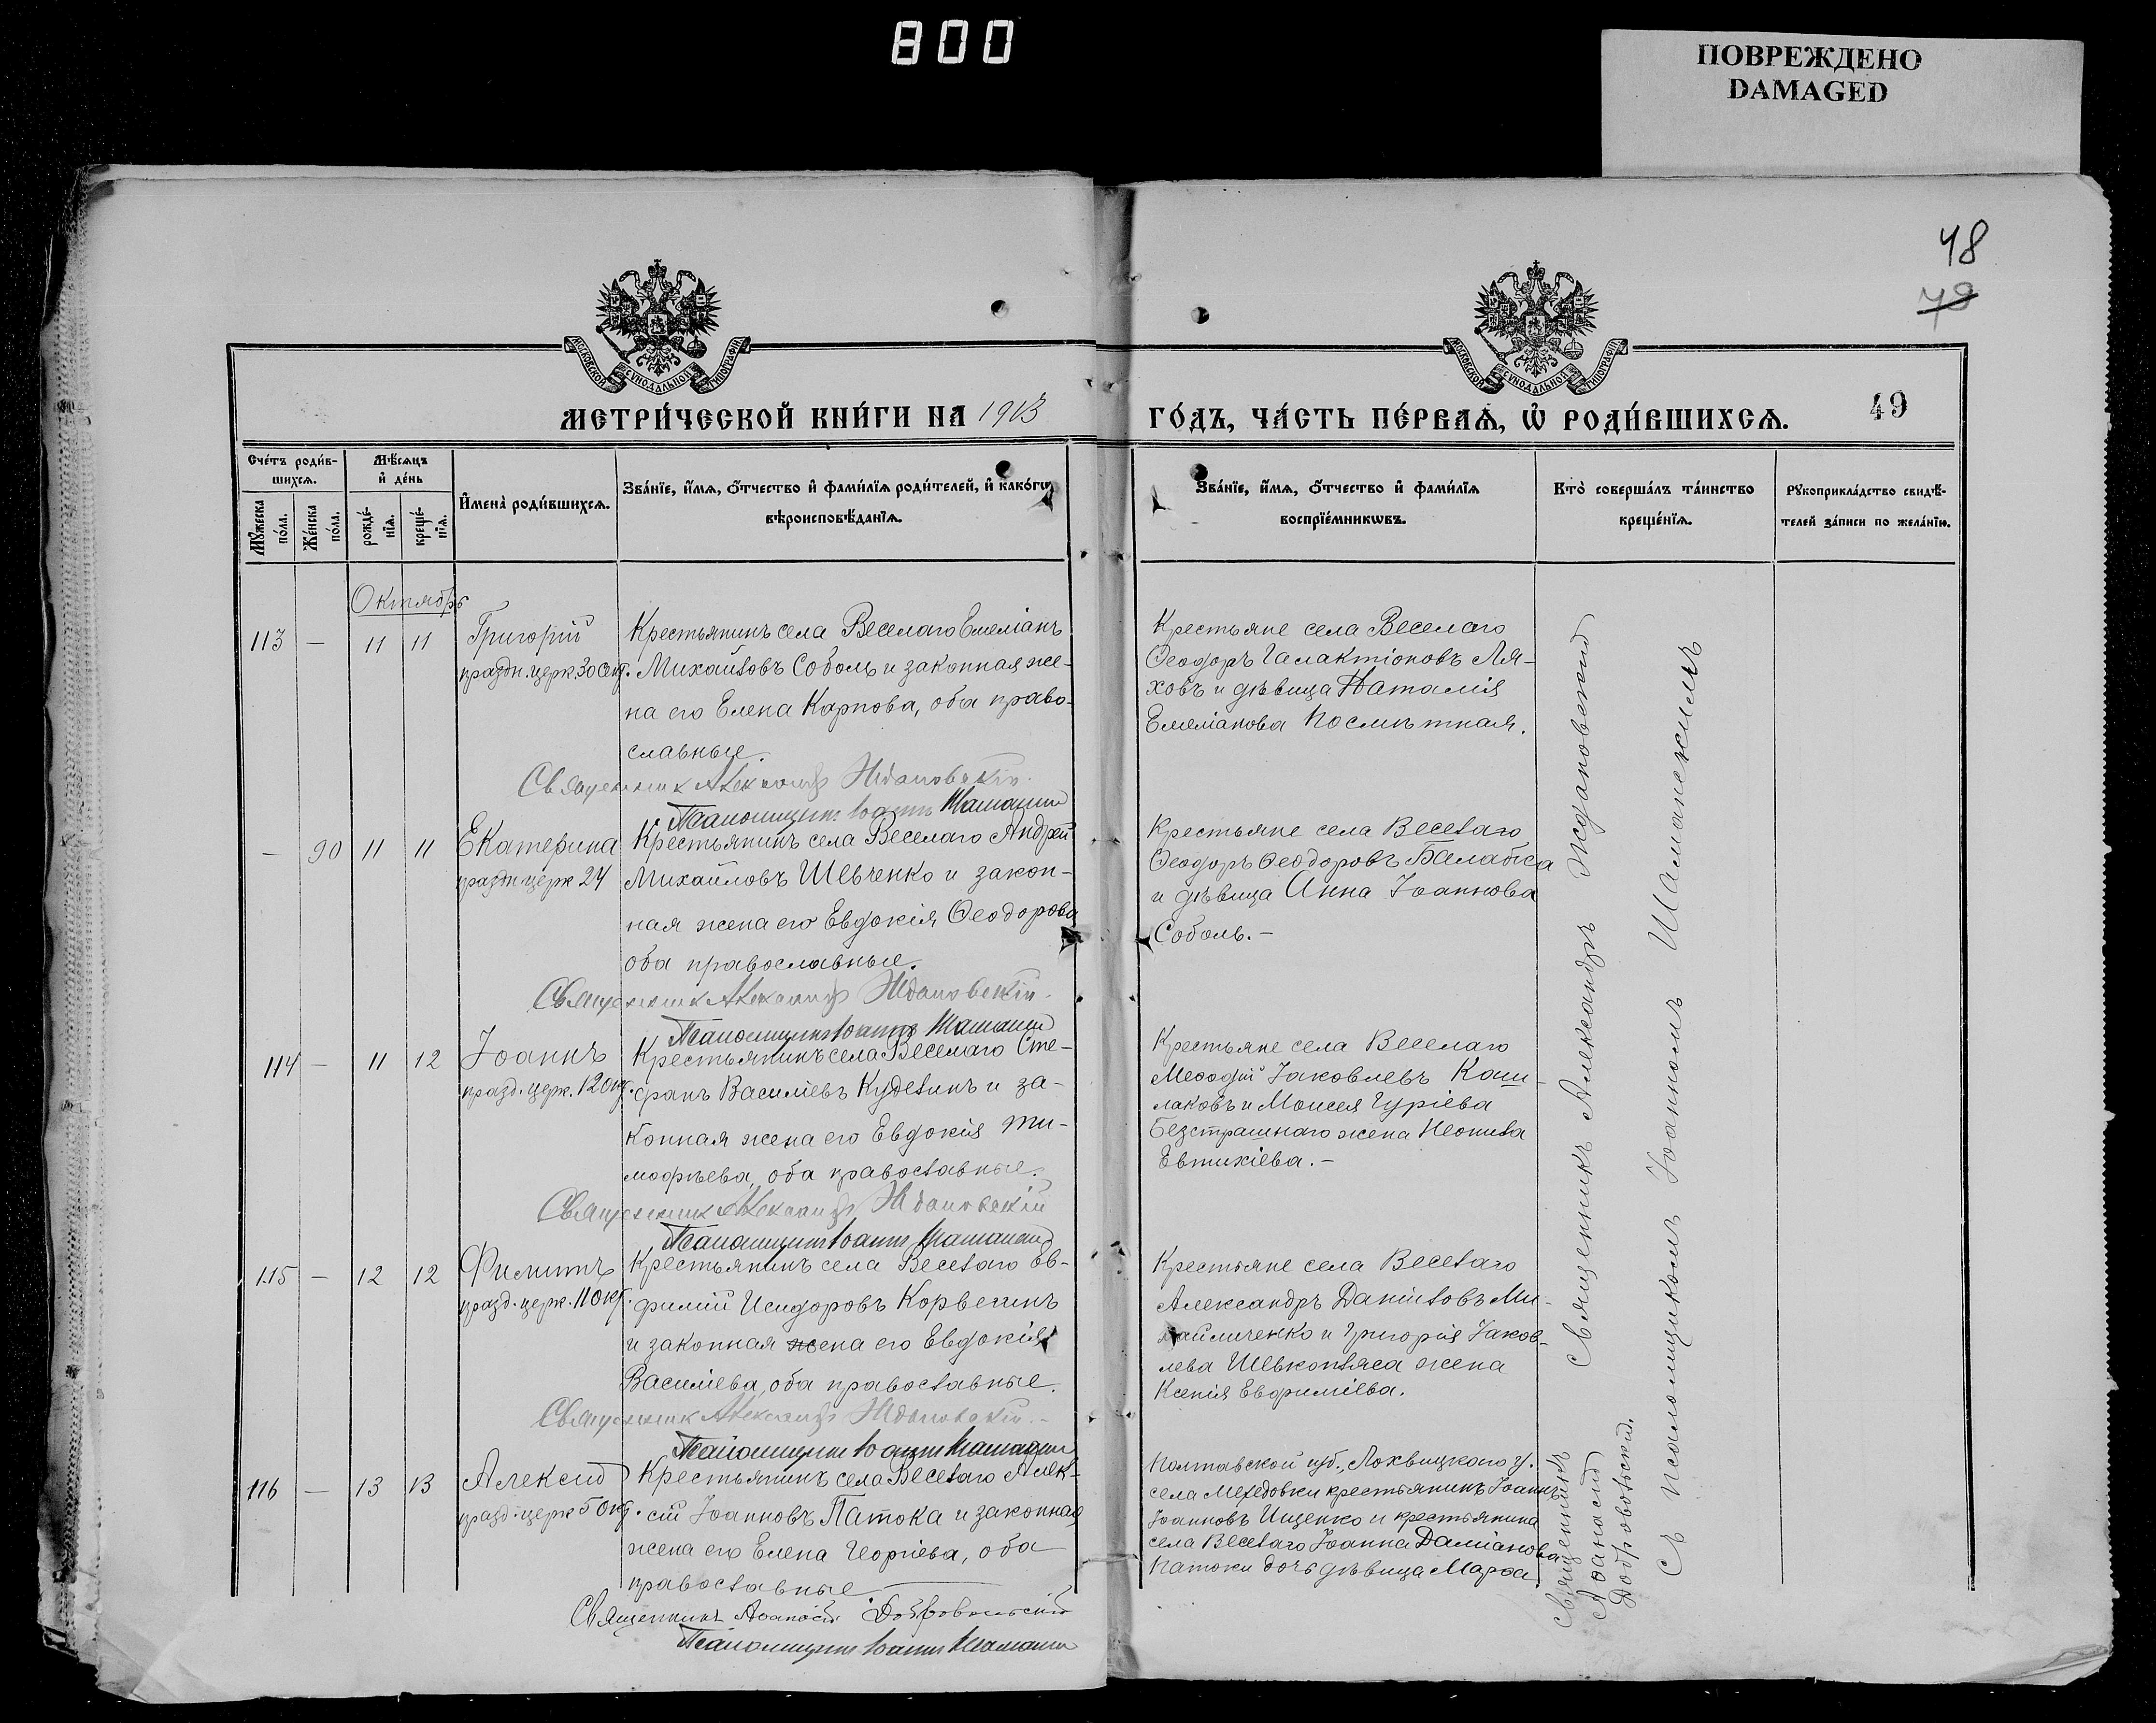 800
ПОВРЕЖДЕНО
DAMAGED
48
79
МОСКОВСКОЙ СѴНОДАЛЬНОЙ ТИПОГРАФІИ
МОСКОВСКОЙ СѴНОДАЛЬНОЙ ТИПОГРАФІИ
МЕТРИ́ЧЕСКОЙ КНИ́ГИ НА 1913
ГО́ДЪ, ЧА́СТЬ ПЕ́РВАѦ, Ѿ РОДИ́ВШИХСѦ.
49
Сче́тъ роди́в-
шихсѧ.
Мꙋ́жеска по́ла.
Же́нска по́ла.
Мѣ́сѧцъ
и҆ де́нь
рожде́-
нїѧ.
креще́-
нїѧ.
И҆мена̀ роди́вшихсѧ.
Зва́нїе, и҆́мѧ, ѻ҆́тчество и҆ фами́лїѧ роди́телей, и҆ како́гѡ
вѣроисповѣ́данїѧ.
Зва́нїе, и҆́мѧ, ѻ҆́тчество и҆ фами́лїѧ
воспрїе́мникѡвъ.
Кто̀ соверша́лъ та́инство
креще́нїѧ.
Рꙋкоприкла́дство свидѣ́-
телей за́писи по жела́нїю.
Октябрь
113 — 11 11 Григорій
праздн. церк. 30 Сент.
Крестьянинъ села Веселаго Емеліанъ
Михайловъ Соболь и законная же-
на его Елена Карпова, оба право-
славные.
Священникъ Александръ Ждановскій.
Псаломщикъ Іоаннъ Шаманжи
Крестьяне села Веселаго
Ѳеодоръ Галактіоновъ Ля-
ховъ и дѣвица Наталія
Емеліанова Посмитная.
— 90 11 11 Екатерина
праздн. церк 24
Крестьянинъ села Веселаго Андрей
Михайловъ Шевченко и закон-
ная жена его Евдокія Ѳеодорова
оба православные.
Священникъ Александръ Ждановскій.
Псаломщикъ Іоаннъ
Крестьяне села Веселаго
Ѳеодоръ Ѳеодоровъ Балабка
и дѣвица Анна Іоаннова
Соболь.—
114 — 11 12 Іоаннъ
празд. церк. 12 Окт.
Крестьянинъ села Веселаго Сте-
фанъ Василіевъ Куделинъ и за-
конная жена его Евдокія Ти-
мофѣева, оба православные.
Священникъ Александръ Ждановскій
Псаломщикъ Іоаннъ
Крестьяне села Веселаго
Меѳодій Іаковлевъ Каш-
лаковъ и Моисея Гуріева
Безстрашнаго жена Неонила
Евтихіева.—
115 — 12 12 Филиппъ
празд. церк. 11 Окт.
Крестьянинъ села Веселаго Ев-
фимій Исидоровъ Корвегинъ
и законная жена его Евдокія
Василіева, оба православные.
Священникъ Александръ Ждановскій.—
Псаломщикъ Іоаннъ
Крестьяне села Веселаго
Александръ Даніиловъ Ми-
хайличенко и Григорія Іаков-
лева Шевкопляса жена
Ксенія Евфиміева.
116 — 13 13 Алексій
празд. церк 5 Окт.
Крестьянинъ села Веселаго Алек-
сій Іоанновъ Патока и законная
жена его Елена Георгіева, оба
православные
Священникъ Аѳанасій Добровольскій
Псаломщикъ Іоаннъ
Полтавской губ., Лохвицкаго у.
села Мехедовки крестьянинъ Іоаннъ
Іоанновъ Ищенко и крестьянина
села Веселаго Іоанна Даміанова
Патоки дочь дѣвица Марѳа.
Священникъ Александръ Ждановскій
Священникъ
Аѳанасій
Добровольскій.
Съ псаломщикомъ Іоанномъ